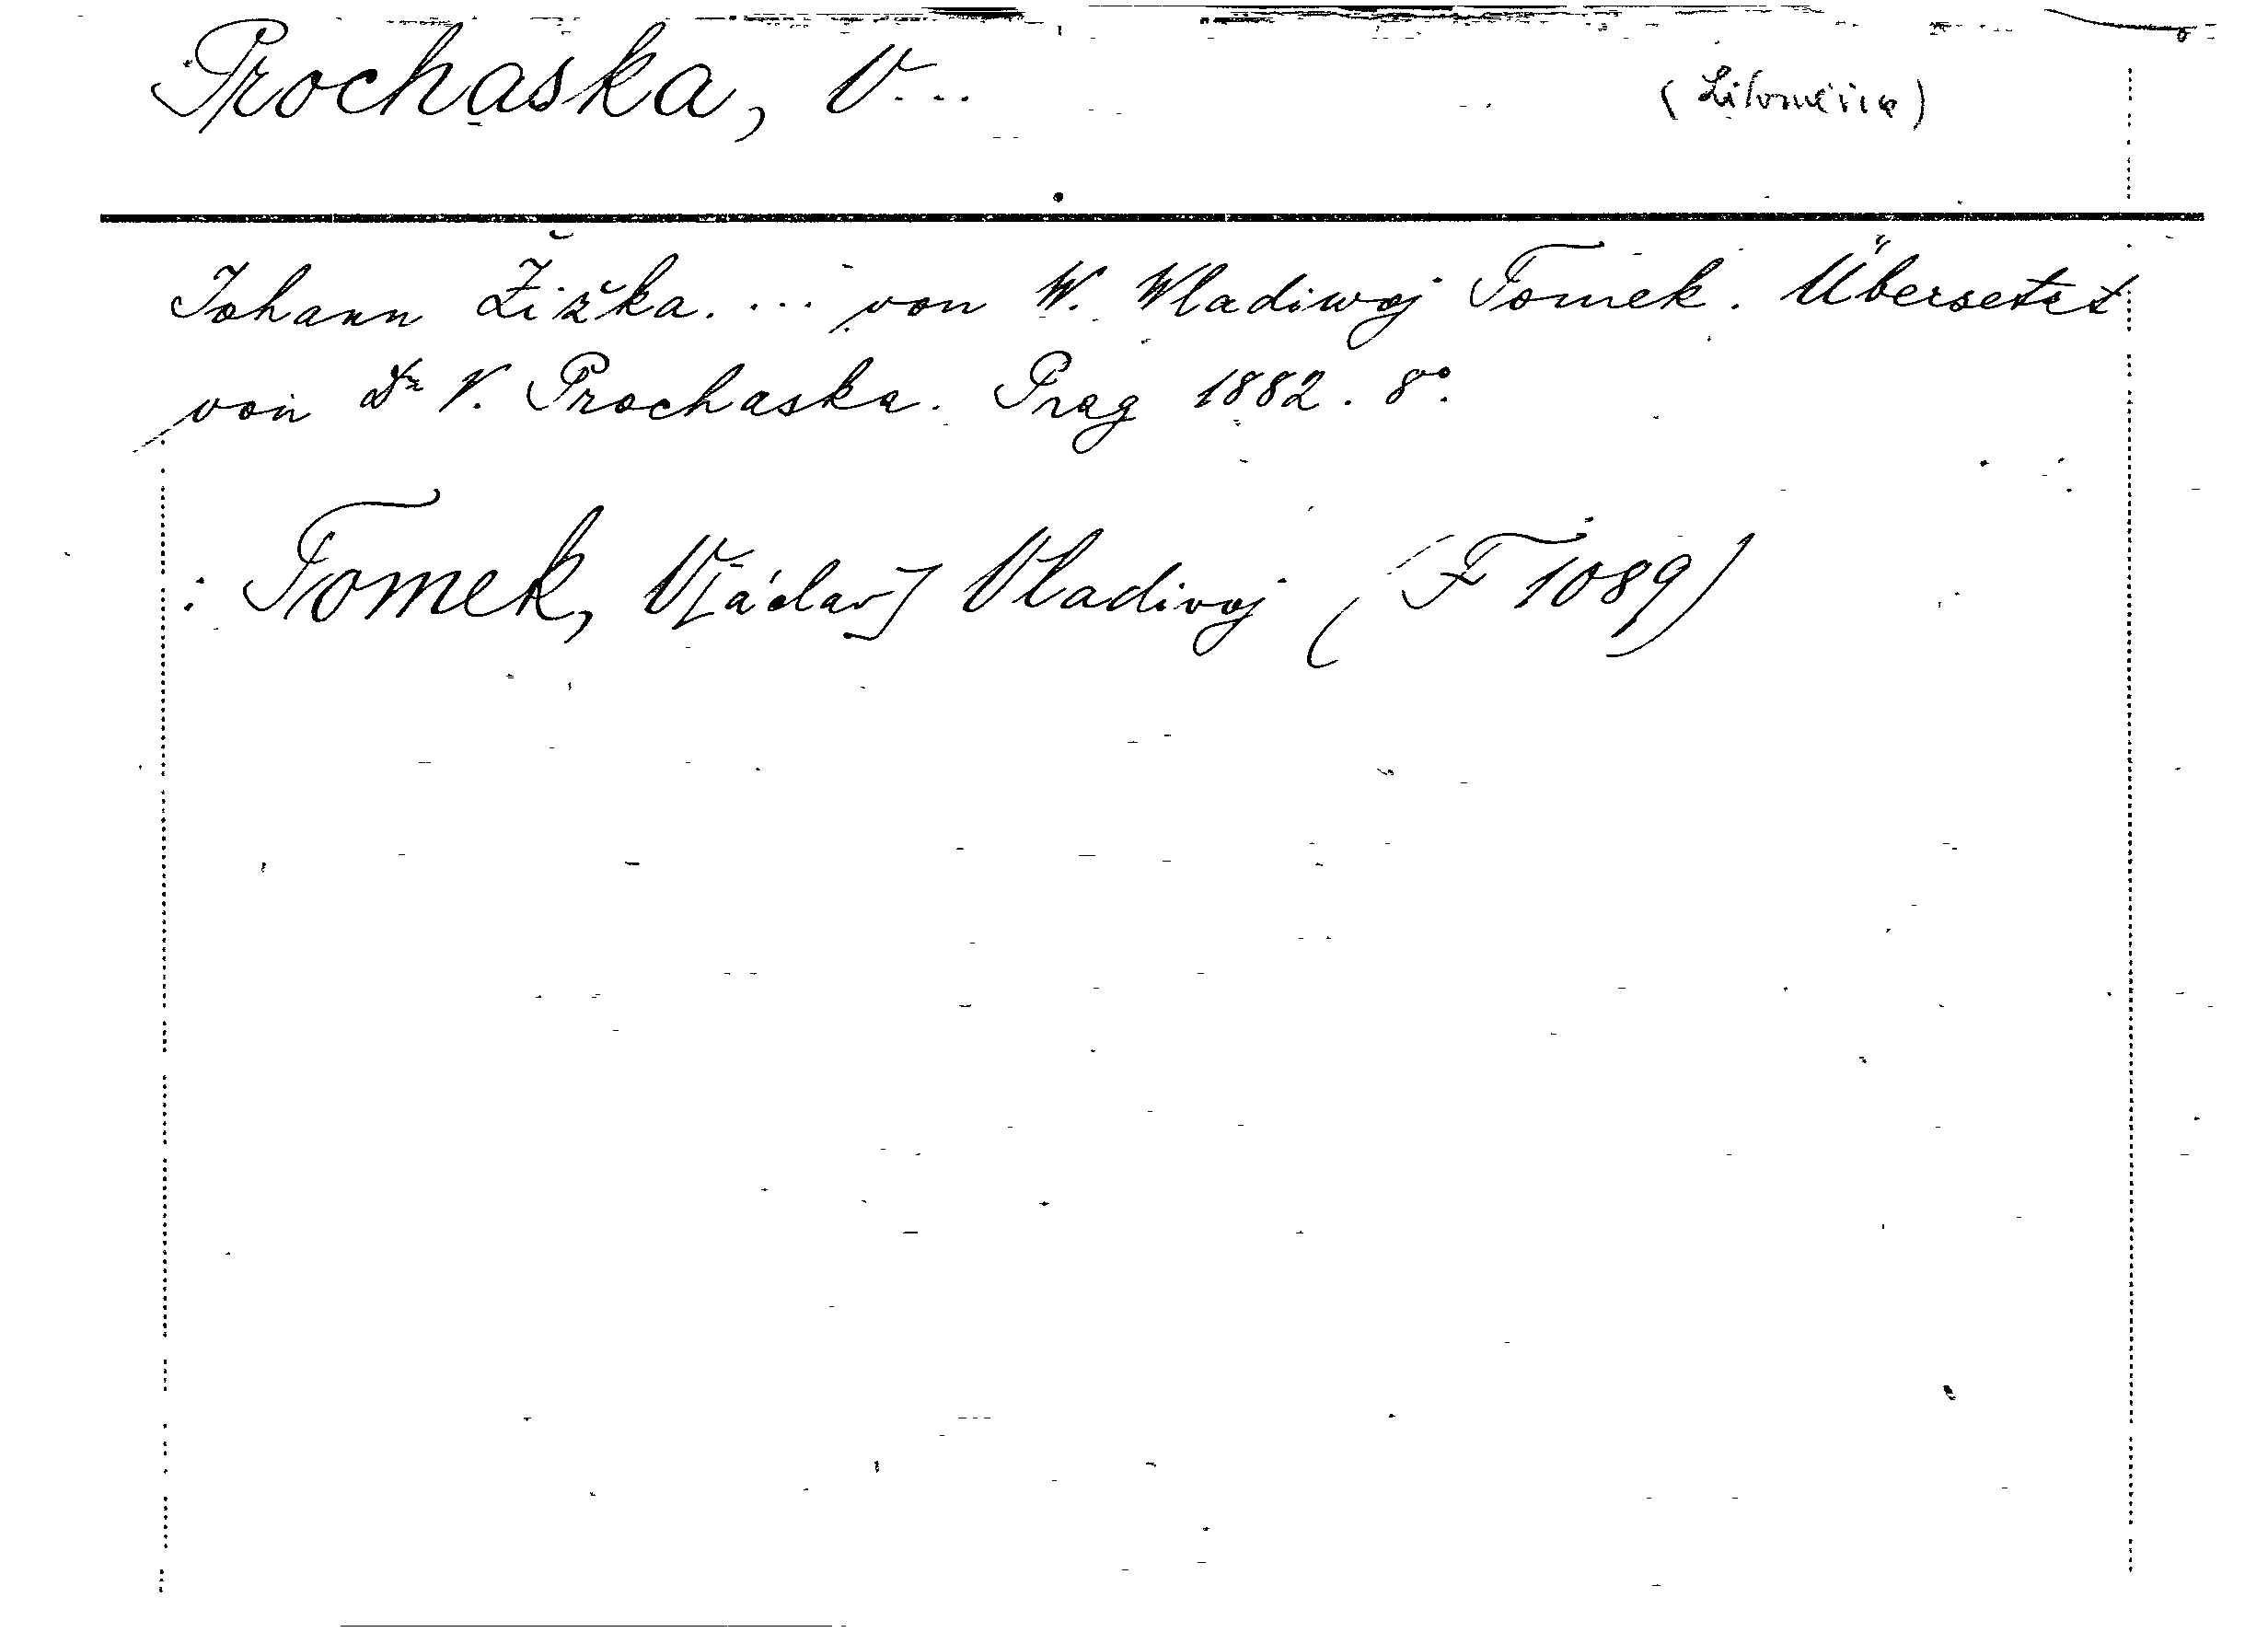 Prochaska, V... (Litoměřice)
Johann Žižka. ... von W. Wladiwoj Tomek. Übersetzt
von Dr V. Prochaska. Prag 1882. 8°.
: Tomek, V[áclav] Vladivoj (F 1089)